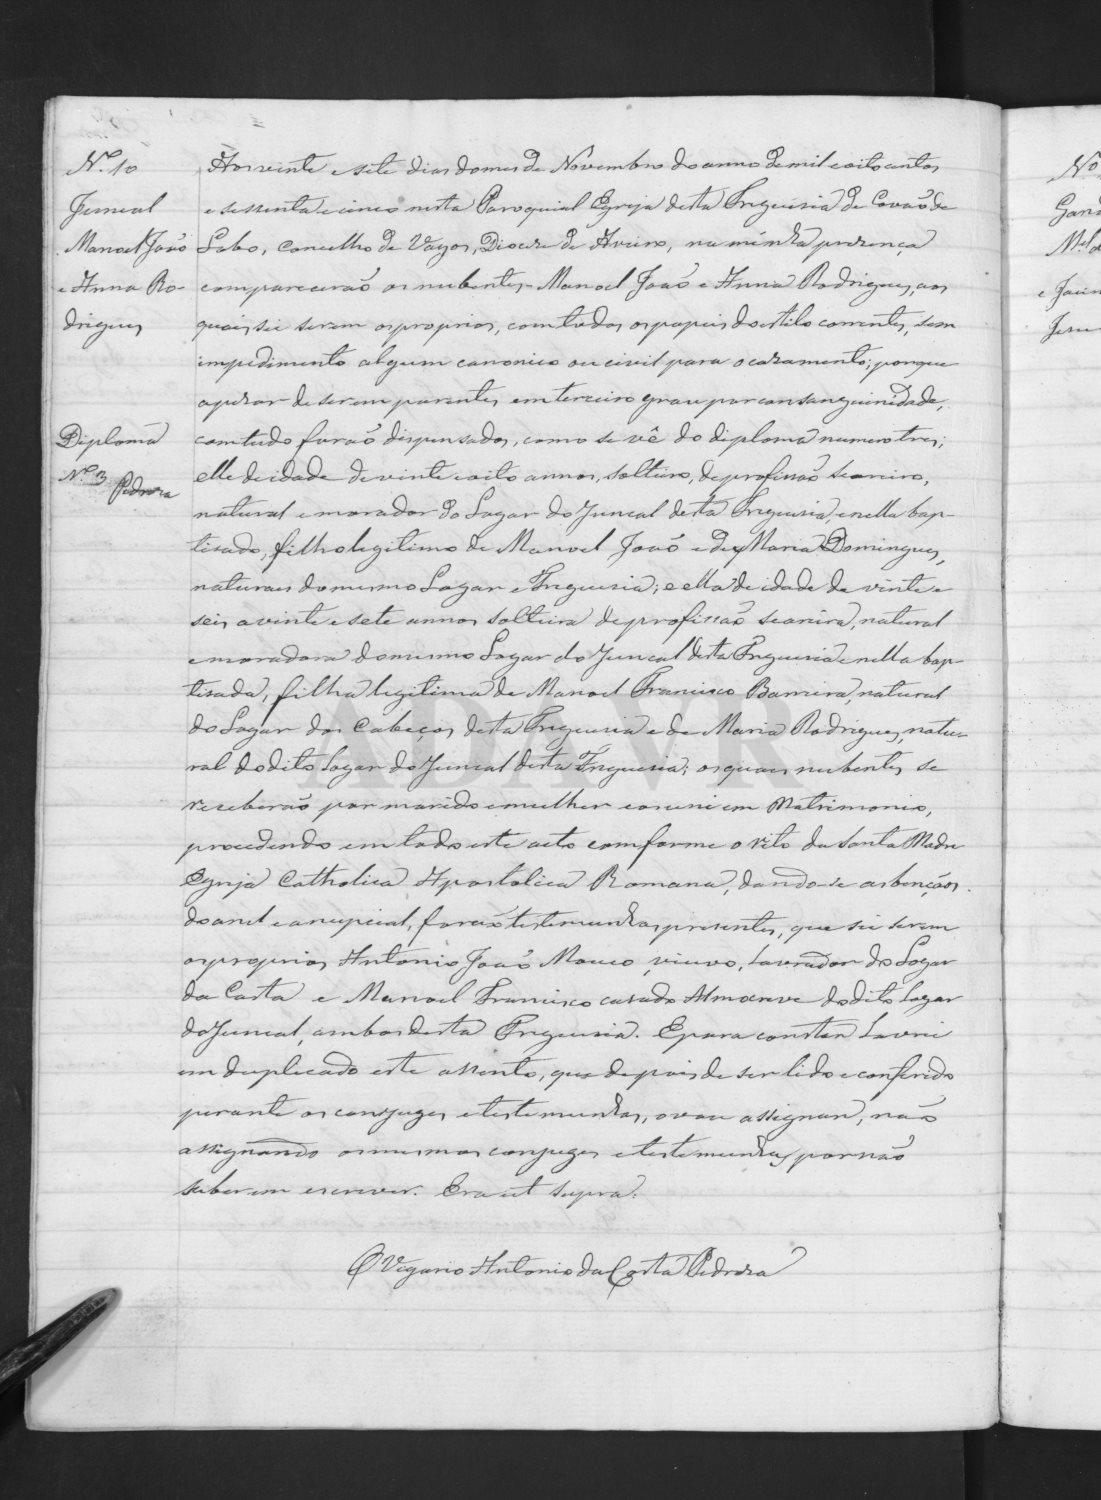 Nº 10
Juncal
Manoel João
e Anna Ro-
drigues
Diploma
Nº 3 Pedroza
Aos vinte e sete dias do mes de Novembro do anno de mil e oito centos
e sessenta e cinco nesta Paroquial Egreja desta Freguesia de Covão de
Lobo, Concelho de Vagos, Diocese de Aveiro, na minha prezença
comparecerão os nubentes Manoel João e Anna Rodrigues, aos
quais sei serem os proprios, com todos os papeis do estilo correntes, sem
impedimento algum canonico ou civil para o cazamento; porque
apezar de serem parentes em terceiro grau por consanguinidade,
com tudo forão dispensados, como se vê do diploma numero tres;
elle de idade de vinte e oito annos, solteiro, de profissão seareiro,
natural e morador do Logar do Juncal desta Freguesia, e nella bap-
tisado, filho legitimo de Manoel João e de Maria Domingues,
naturaes do mesmo Logar e Freguesia; e ella de idade de vinte e
seis a vinte e sete annos solteira de profissão seareira, natural
e moradora do mesmo Logar do Juncal desta Freguesia e nella bap-
tisada, filha legitima de Manoel Francisco Barreira, natural
do Logar dos Cabeços desta Freguesia e de Maria Rodrigues, natu-
ral do dito Logar do Juncal desta Freguesia; os quaes nubentes se
receberão por marido e mulher e os uni em Matrimonio,
procedendo em todo este acto comforme o rito da Santa Madre
Egreja Catholica Apostolica Romana, dando-se as bençãos
do anel e a nupcial, forão testemunhas prezentes, que sei serem
os proprios Antonio João Mouco, viuvo, Lavrador do Logar
da Costa e Manoel Francisco casado Almocreve do dito Logar
do Juncal, ambos desta Freguesia. E para constar Lavrei
em duplicado este assento, que depois de ser lido e conferido
perante os conjuges e testemunhas, o vou assignar, não
assignando os mesmos conjuges e testemunhas por não
saberem escrever. Era ut supra.
O Vigario Antonio da Costa Pedroza
Nº
Gand
Mel
e Joan
ADAVR